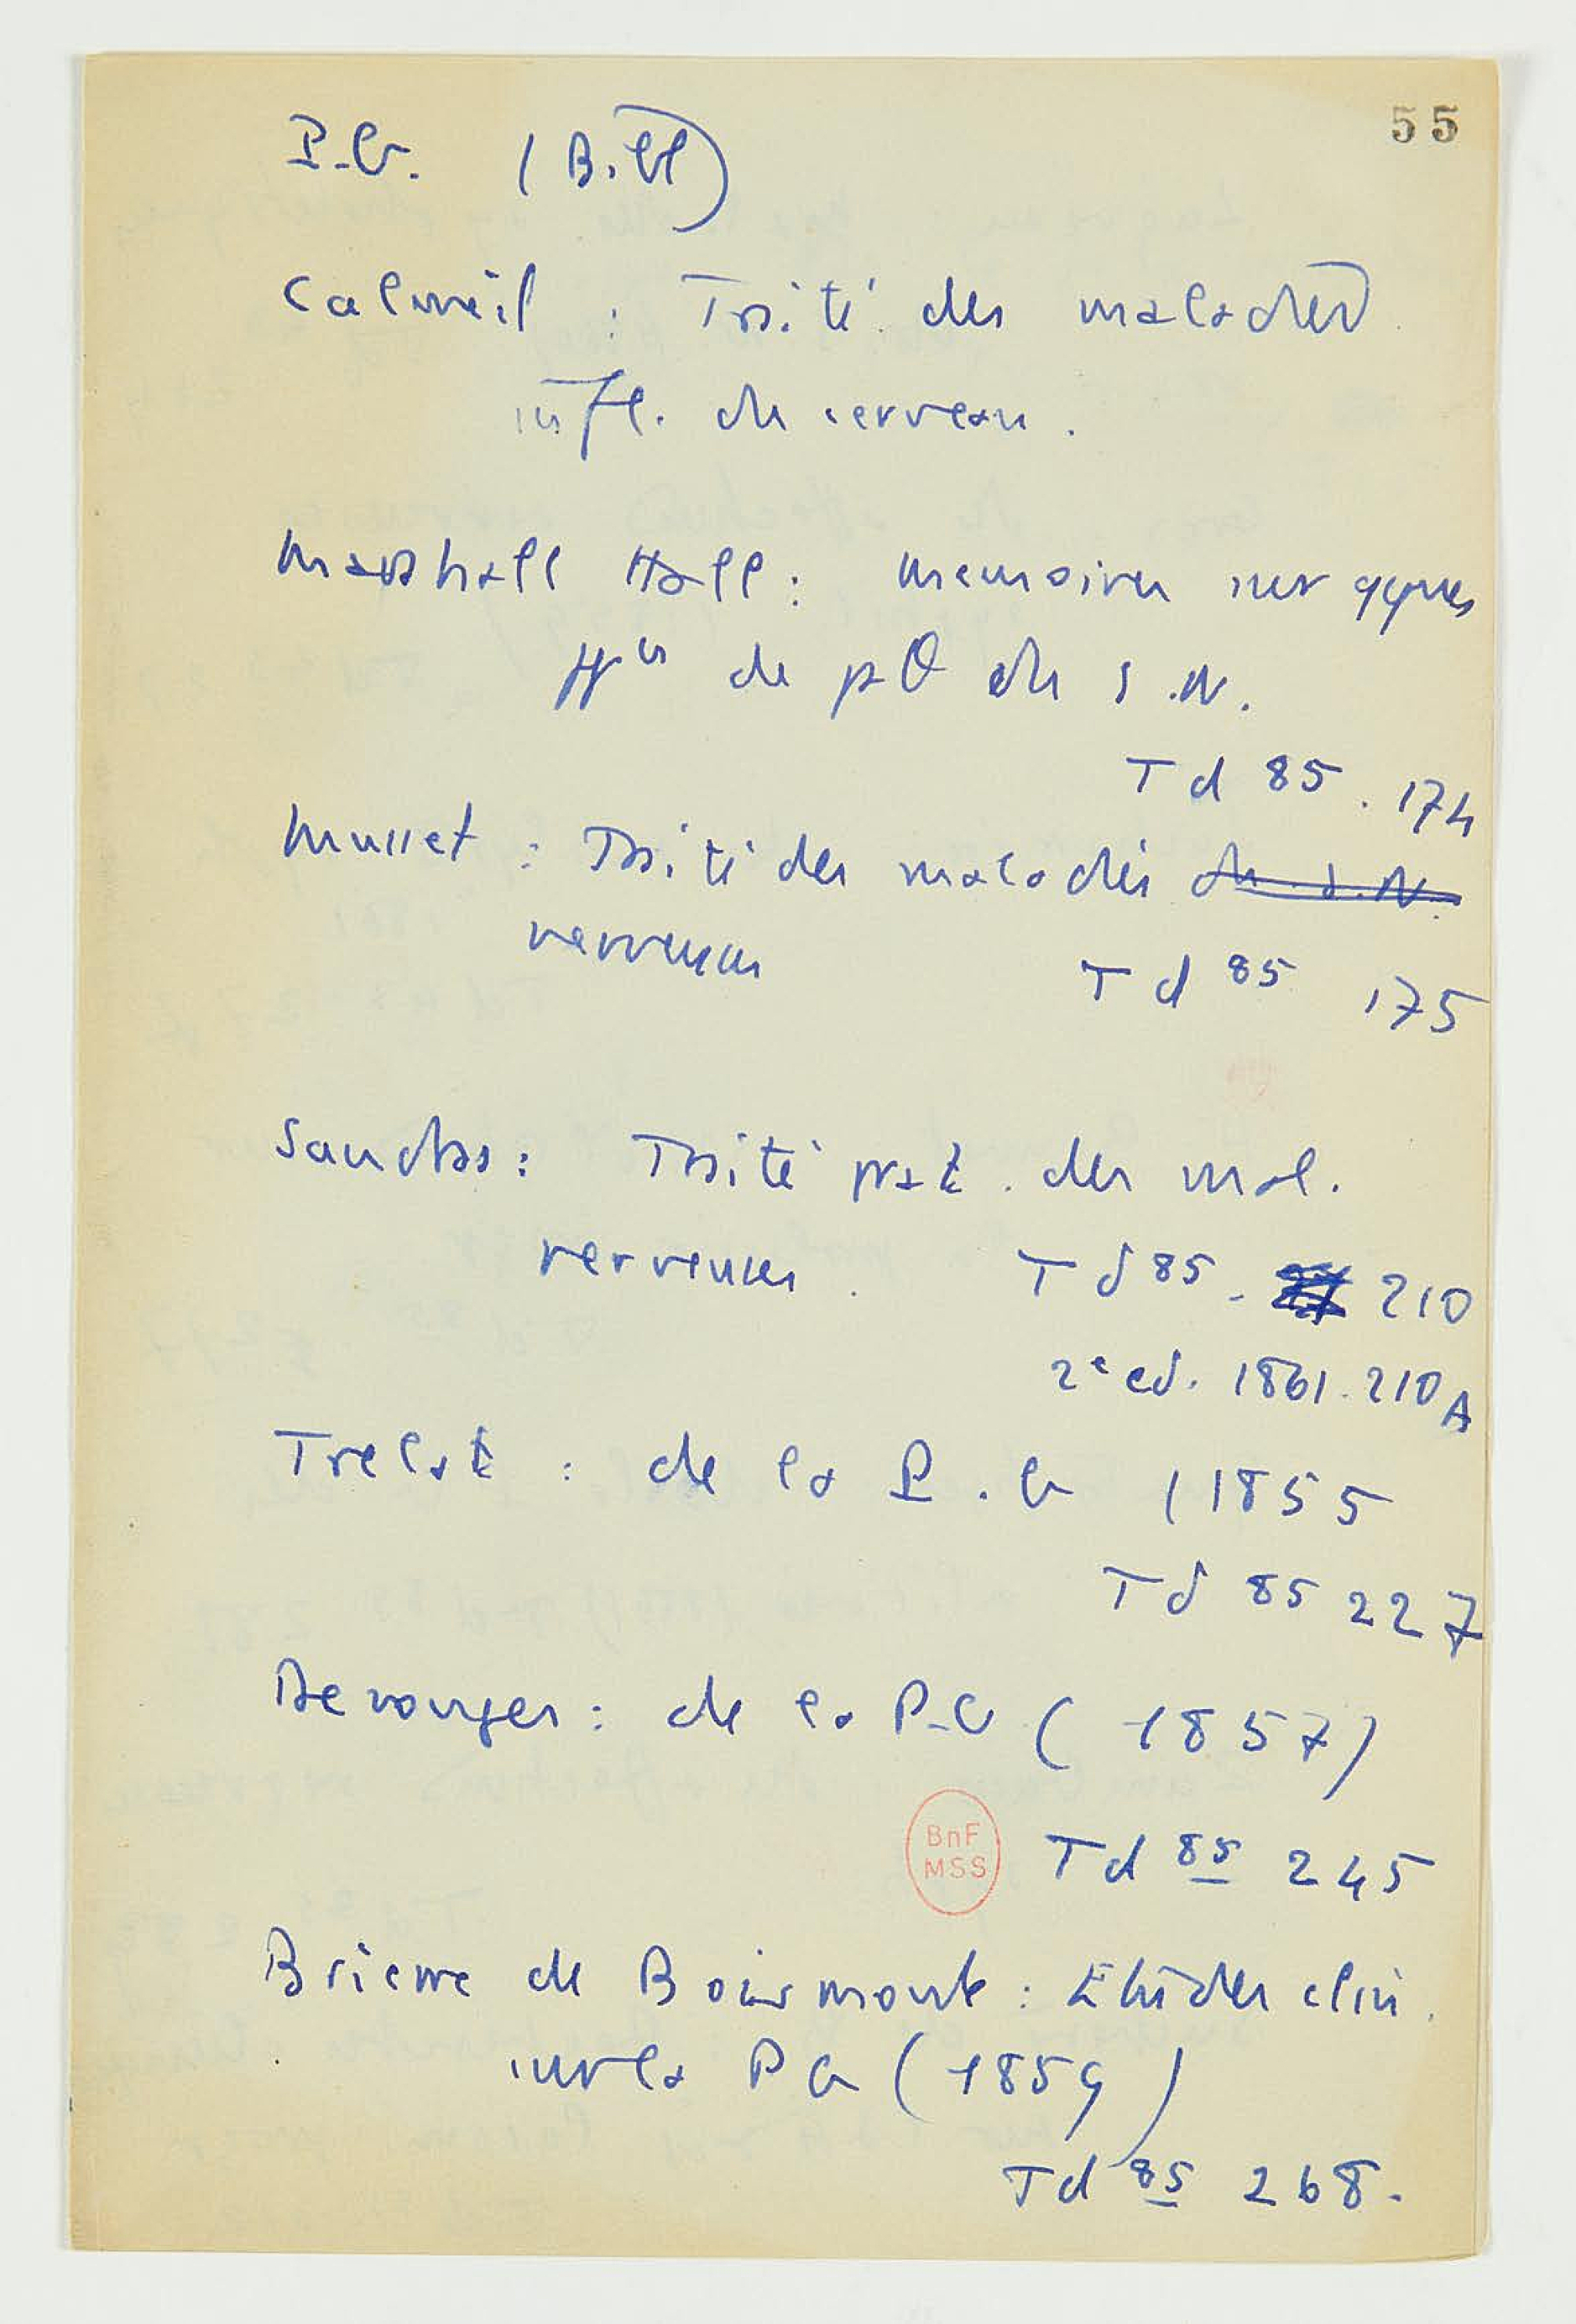 55
P.G. (Bibl)
Calmeil : Traité des maladies
infl. du cerveau.
Marshall Hall : Memoires sur qques
de pθ du S.N.
Td 85. 174
Musset : Traité des maladies du S.N.
nerveuses Td 85 175
Sandras : Traité prat. des mal.
nerveuses. Td 85. 210
2e ed. 1861. 210A
Trelat : de la P.G (1855
Td 85 227
Devouges : de la P.G (1857)
BnF
MSS
Td 85 245
Brierre de Boismont : Etudes clin.
sur la PG (1859)
Td 85 268.